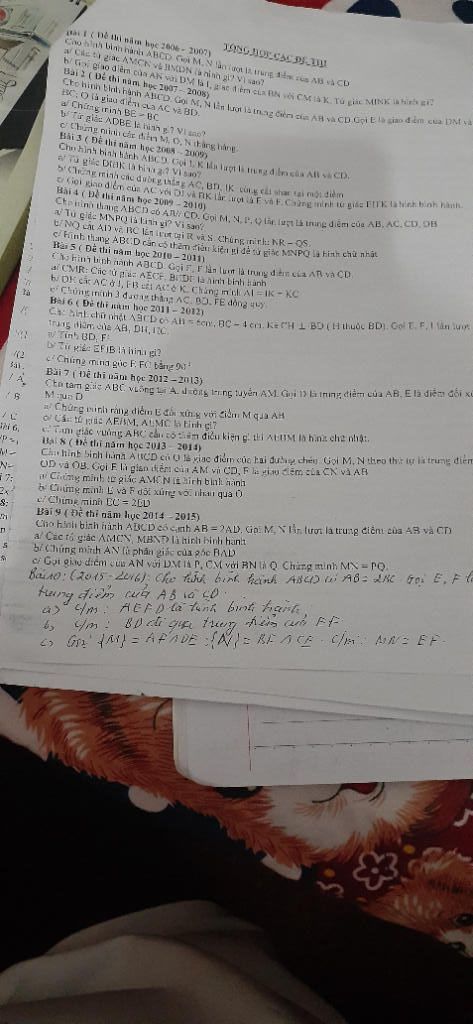 TỔNG HỢP CÁC ĐỀ THI
Bài 1 ( Đề thi năm học 2006 - 2007)
Cho hình bình hành ABCD. Gọi M, N lần lượt là trung điểm của AB và CD
a/ Các tứ giác AMCN và BMDN là hình gì? Vì sao?
b/ Gọi giao điểm của AN với DM là I, giao điểm của BN với CM là K. Tứ giác MINK là hình gì?
Bài 2 ( Đề thi năm học 2007 - 2008)
Cho hình bình hành ABCD. Gọi M, N lần lượt là trung điểm của AB và CD.Gọi E là giao điểm của DM và
BC, O là giao điểm của AC và BD.
a/ Chứng minh BE = BC
b/ Tứ giác ADBE là hình gì? Vì sao?
c/ Chứng minh các điểm M, O, N thẳng hàng.
Bài 3 ( Đề thi năm học 2008 - 2009)
Cho hình bình hành ABCD. Gọi I, K lần lượt là trung điểm của AB và CD.
a/ Tứ giác DIBK là hình gì? Vì sao?
b/ Chứng minh các đường thẳng AC, BD, IK cùng cắt nhau tại một điểm
c/ Gọi giao điểm của AC với DI và BK lần lượt là E và F. Chứng minh tứ giác EIFK là hình bình hành.
Bài 4 ( Đề thi năm học 2009 - 2010)
Cho hình thang ABCD có AB// CD. Gọi M, N, P, Q lần lượt là trung điểm của AB, AC, CD, DB
a/ Tứ giác MNPQ là hình gì? Vì sao?
b/ NQ cắt AD và BC lần lượt tại R và S. Chứng minh: NR = QS.
c/ Hình thang ABCD cần có thêm điều kiện gì để tứ giác MNPQ là hình chữ nhật
Bài 5 ( Đề thi năm học 2010 - 2011)
Cho hình bình hành ABCD. Gọi E, F lần lượt là trung điểm của AB và CD.
a/ CMR: Các tứ giác AECF, BEDF là hình bình hành
b/ DE cắt AC ở I, FB cắt AC ở K. Chứng minh AI = IK = KC
c/ Chứng minh 3 đường thẳng AC, BD, FE đồng quy.
Bài 6 ( Đề thi năm học 2011 - 2012)
Cho hình chữ nhật ABCD có AB = cm, BC = 4 cm. Kẻ CH ⊥ BD ( H thuộc BD). Gọi E, F, I lần lượt
trung điểm của AB, DH, HC.
a/ Tính BD,
b/ Tứ giác EFIB là hình gì?
c/ Chứng minh góc EFC bằng 90°
Bài 7 ( Đề thi năm học 2012 - 2013)
Cho tam giác ABC vuông tại A, đường trung tuyến AM. Gọi D là trung điểm của AB, E là điểm đối xứ
M qua D
a/ Chứng minh rằng điểm E đối xứng với điểm M qua AB
b/ Các tứ giác AEBM, AEMC là hình gì?
c/ Tam giác vuông ABC cần có thêm điều kiện gì thì AEBM là hình chữ nhật.
Bài 8 ( Đề thi năm học 2013 - 2014)
Cho hình bình hành ABCD có O là giao điểm của hai đường chéo. Gọi M, N theo thứ tự là trung điểm
OD và OB. Gọi E là giao điểm của AM và CD, F là giao điểm của CN và AB
a/ Chứng minh tứ giác AMCN là hình bình hành
b/ Chứng minh E và F đối xứng với nhau qua O
c/ Chứng minh EC = 2ED
Bài 9 ( Đề thi năm học 2014 - 2015)
Cho hình bình hành ABCD có cạnh AB = 2AD. Gọi M, N lần lượt là trung điểm của AB và CD
a/ Các tứ giác AMCN, MBND là hình bình hành
b/ Chứng minh AN là phân giác của góc BAD
c/ Gọi giao điểm của AN với DM là P, CM với BN là Q. Chứng minh MN = PQ.
Bài 10: (2015-2016): Cho hình bình hành ABCD có AB = 2BC. Gọi E, F là
trung điểm của AB và CD.
a) c/m: AEFD là hình bình hành,
b) c/m: BD đi qua trung điểm của EF
c) Gọi {M} = AF∩DE; {N} = BF∩CE. c/m: MN = EF.